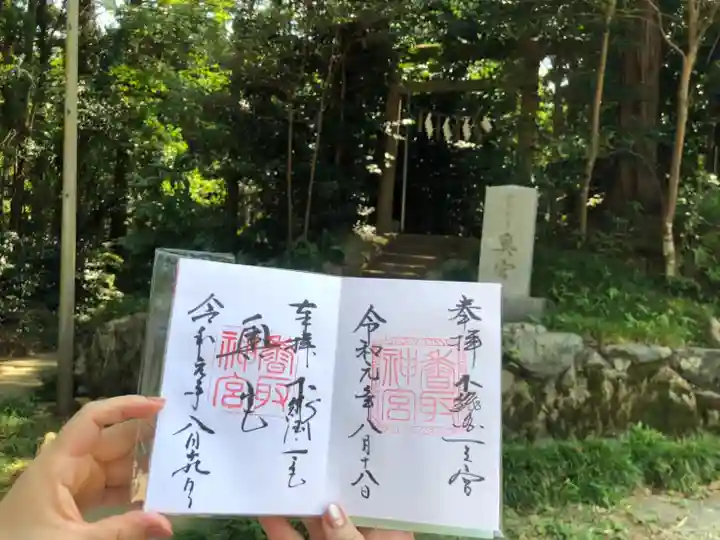 奉拝 下総国一之宮
香取神宮
令和元年八月十八日
奉拝 下総国一之宮
香取神宮
奥宮
令和元年八月十八日
奥宮